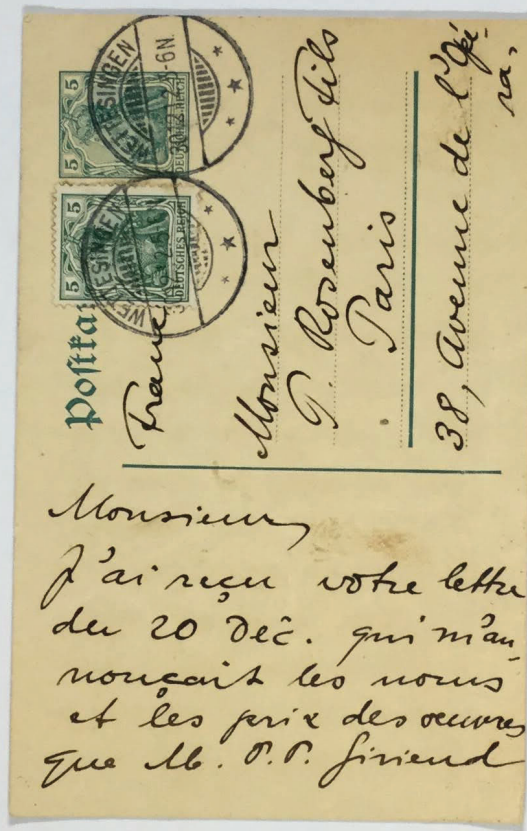 5 5
5 5
DEUTSCHES REICH
WETTESINGEN
WETTESINGEN
30.12.
-6N.
Postka
France
Monsieur
P. Rosenberg Fils
Paris
38, Avenue de l'Opé-
ra,
Monsieur,
J'ai reçu votre lettre
du 20 Déc. qui m'an-
nonçait les noms
et les prix des œuvres
que M. P. P. Girieud